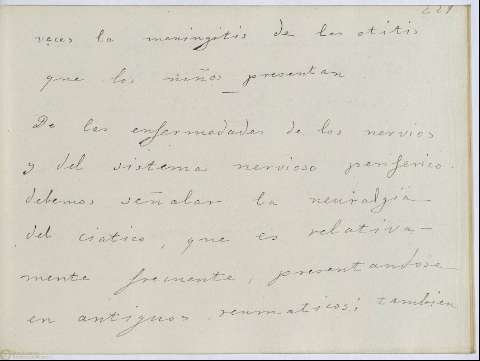 veces la meningitis de las otitis
que los niños presentan
De las enfermedades de los nervios
y del sistema nervioso periferico
debemos señalar la neuralgia
del ciatico, que es relativa-
mente frecuente, presentandose
en antiguos reumaticos; tambien